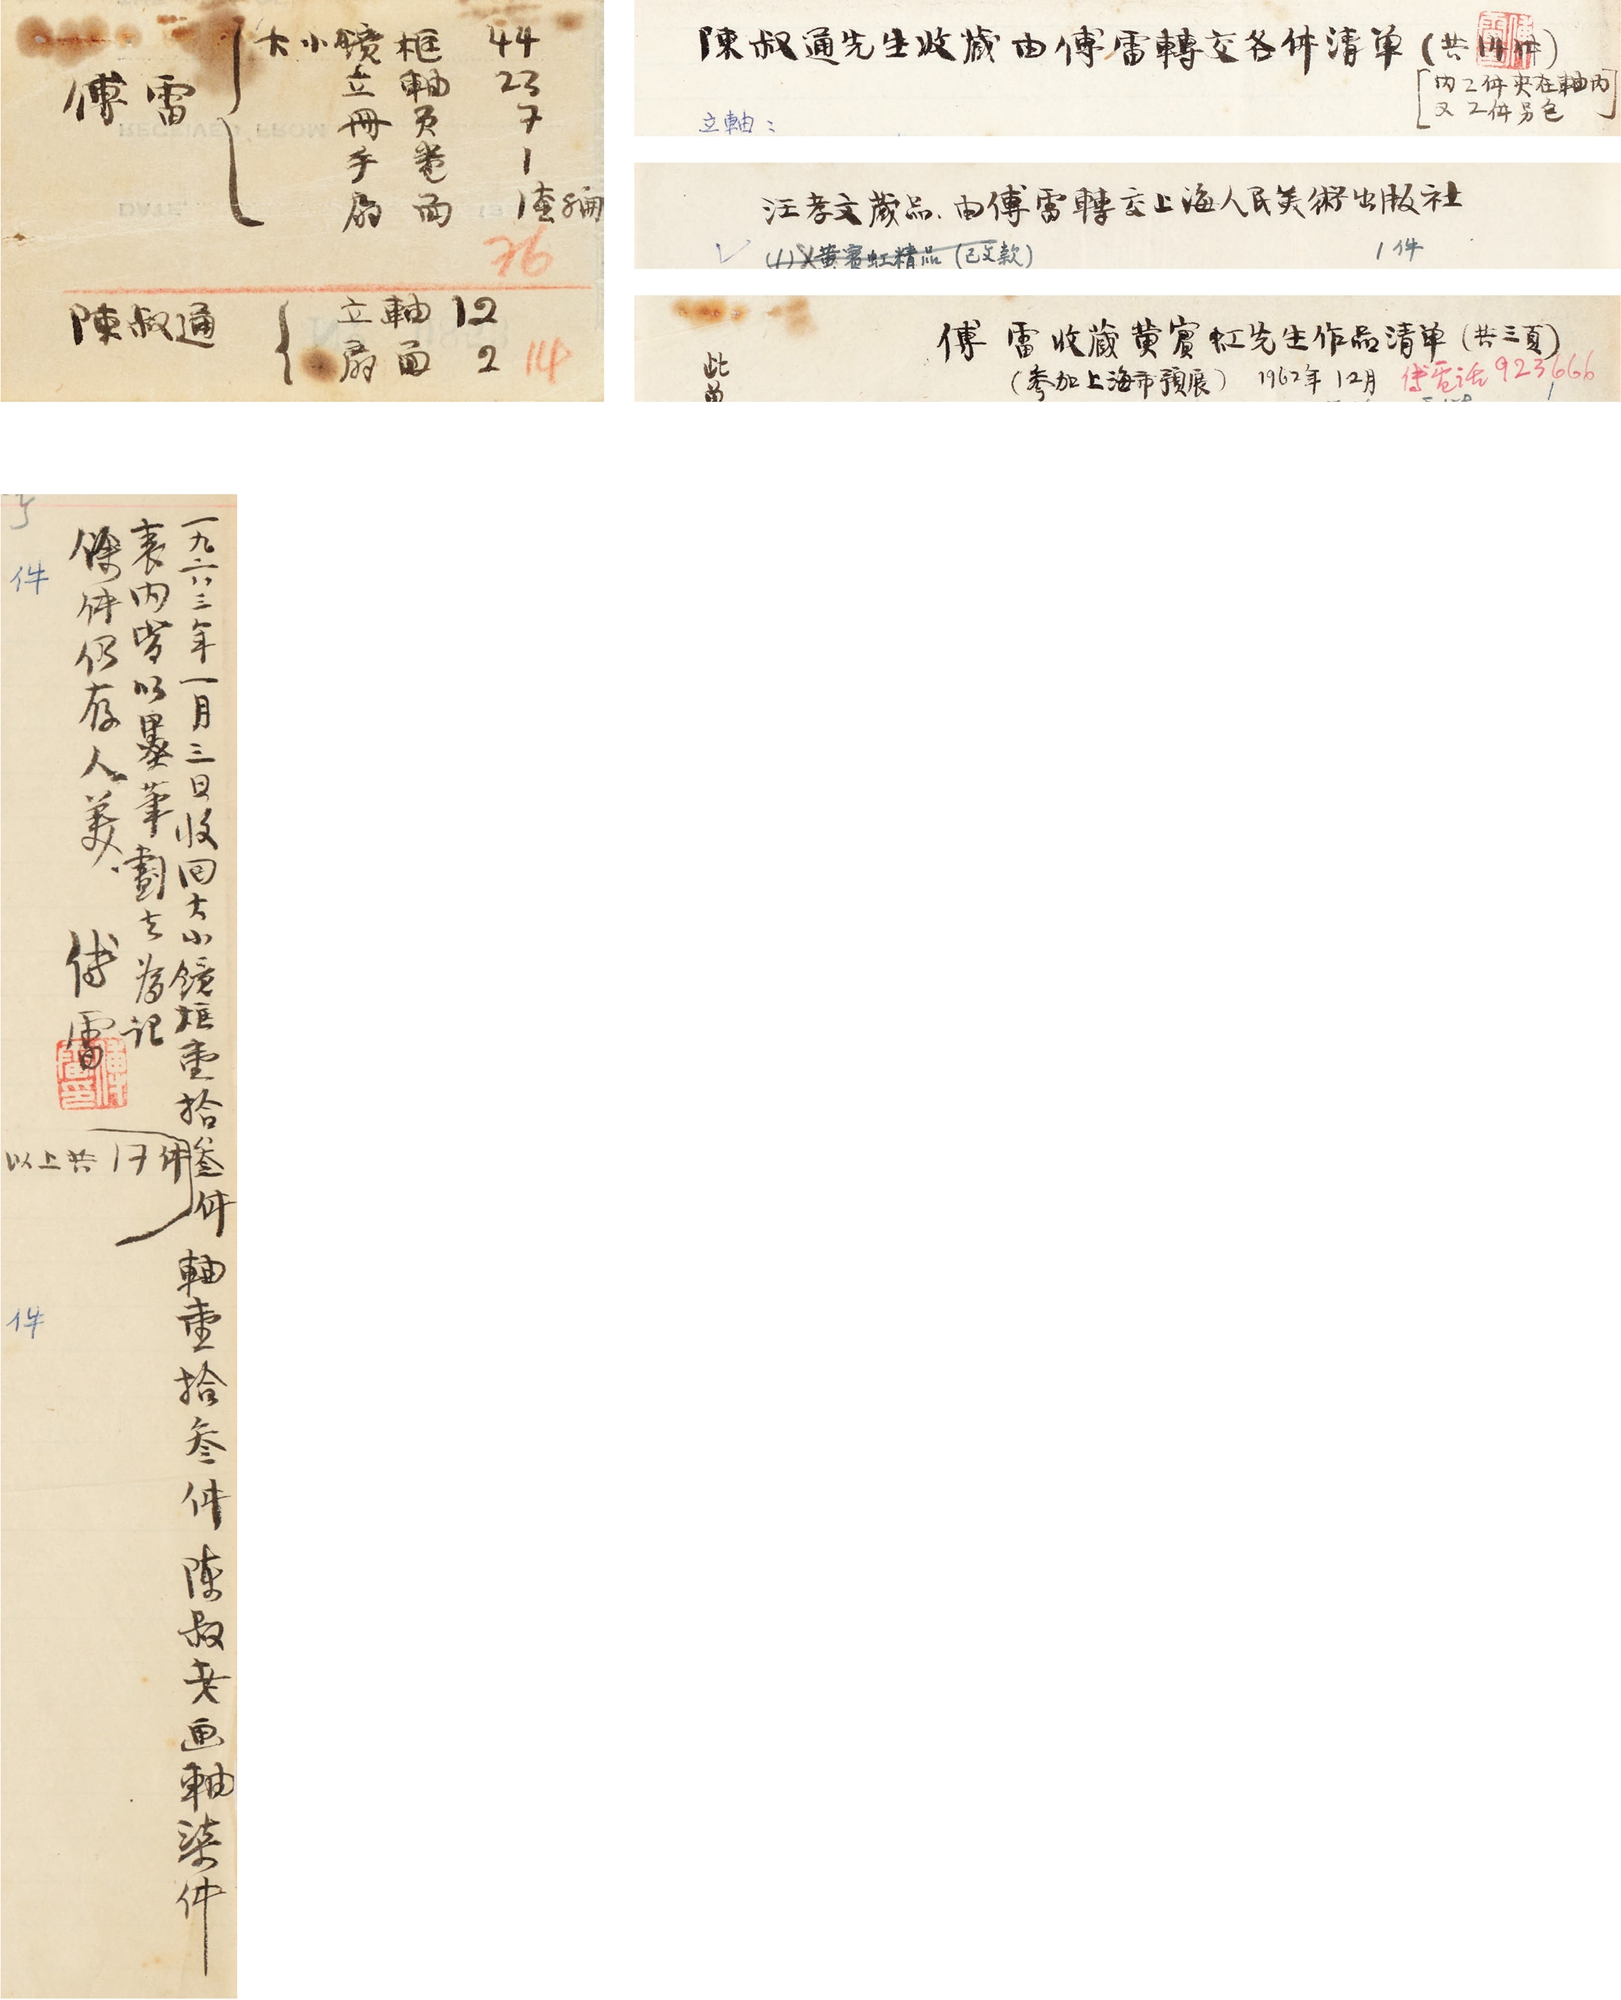 傅雷
大小鏡框 44
立軸 23
冊頁 7
手卷 1
扇面 1
76
陳叔通
立軸 12
扇面 2
14
陳叔通先生收藏由傅雷轉交各件清單(共14件)
[内2件夾在軸内
又2件另包]
立軸:
汪孝文藏品.由傅雷轉交上海人民美術出版社
(1)黄賓虹精品(已文款) 1件
傅雷收藏黄賓虹先生作品清單(共三頁)
(參加上海市預展) 1962年12月 傅電话923666
此
一九六三年一月三日收回大小鏡框壹拾叁件 軸壹拾叁件 陳叔老画軸柒件
表内皆以墨筆劃去爲記
餘件仍存人美.
傅雷
件
以上共17件
件